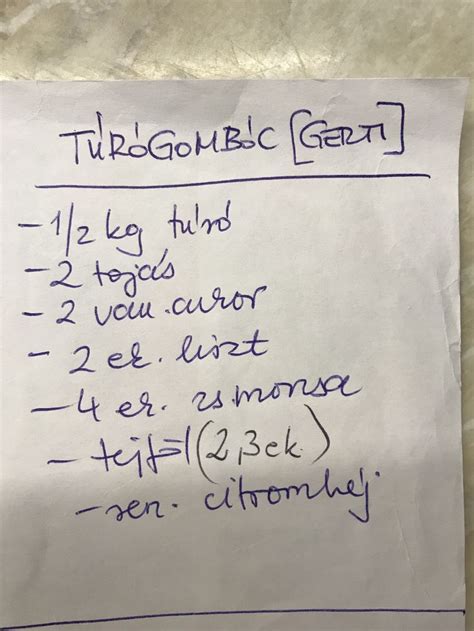 TÚRÓGOMBÓC [GERTI]
- 1/2 kg túró
- 2 tojás
- 2 van. cukor
- 2 ek. liszt
- 4 ek. zs. morzsa
- tejföl (2,3 ek.)
- reszelt citromhéj